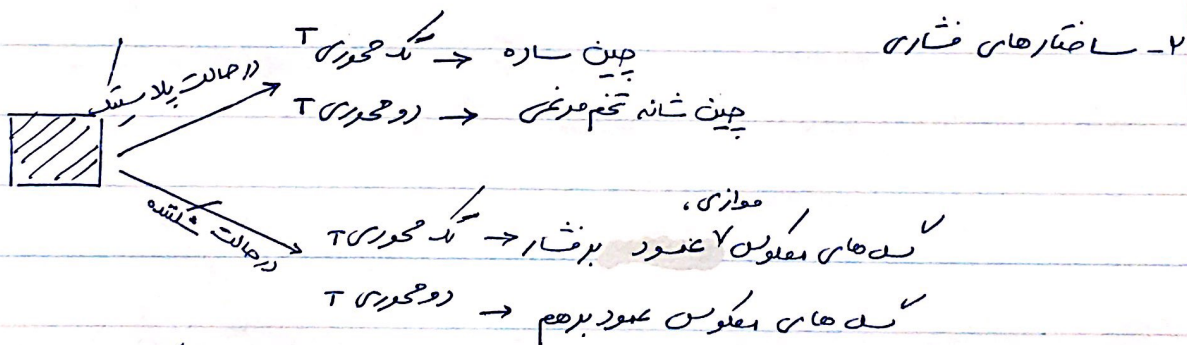 ۲- ساختارهای فشاری
در حالت پلاستیک
تک محوری T → چین ساده
دو محوری T → چین شانه تخم مرغی
در حالت شکننده
گسل های معکوس موازی، عمود بر فشار → تک محوری T
گسل های معکوس عمود بر هم → دو محوری T